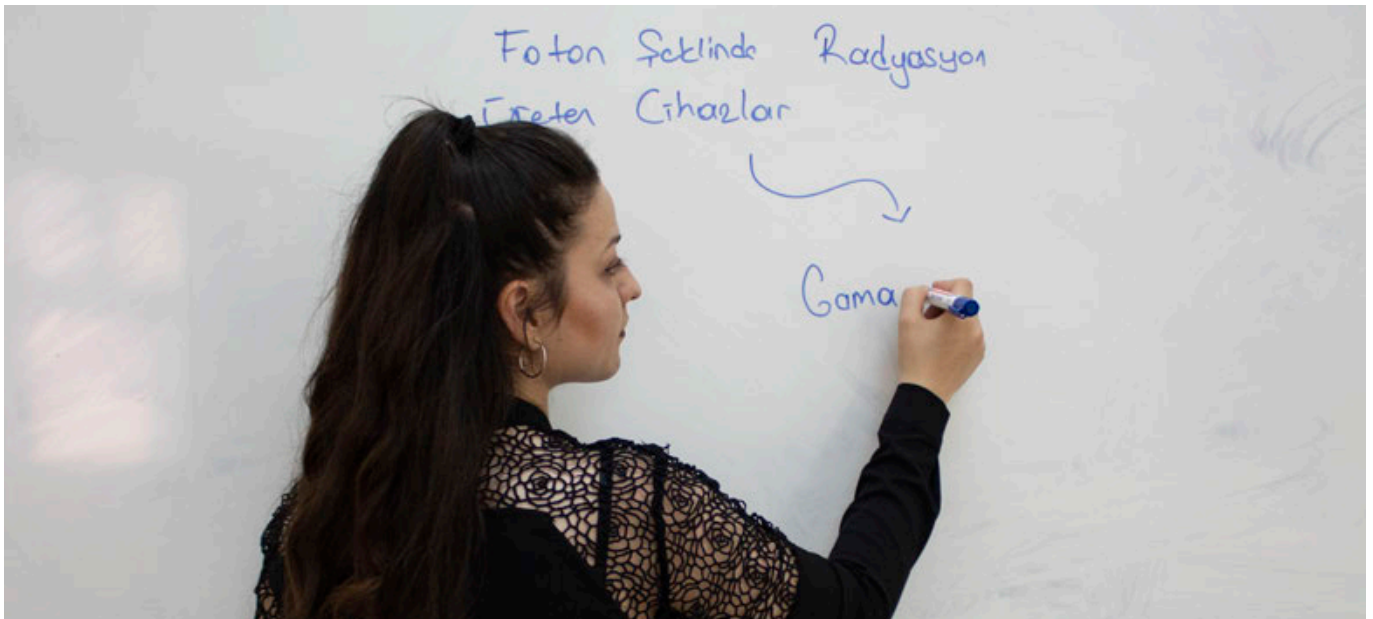 Foton Şeklinde Radyasyon
Üreten Cihazlar
Gama